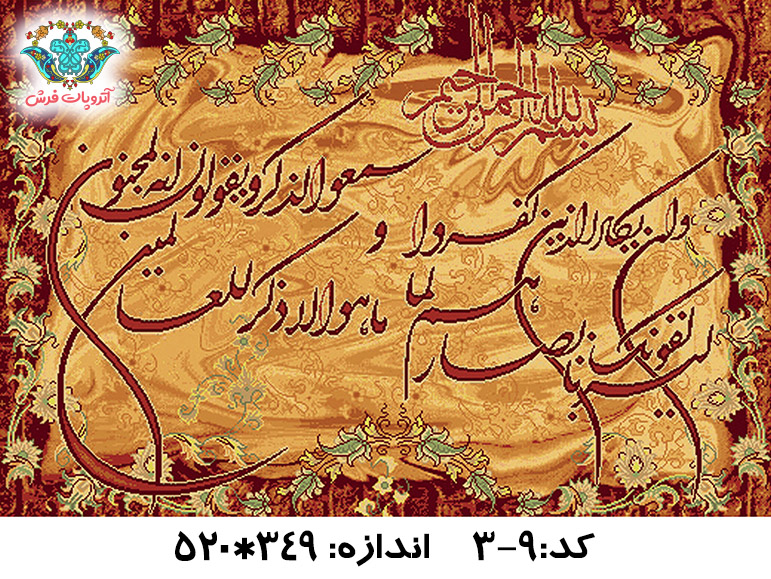 آتروپات فرش
بسم الله الرحمن الرحیم
وان یکاد الذین کفروا
لیزلقونک بابصارهم لما
سمعوا الذکر و یقولون انه لمجنون
و
ما هو الا ذکر للعالمین
کد:۹-۳ اندازه: ۳۴۹*۵۲۰